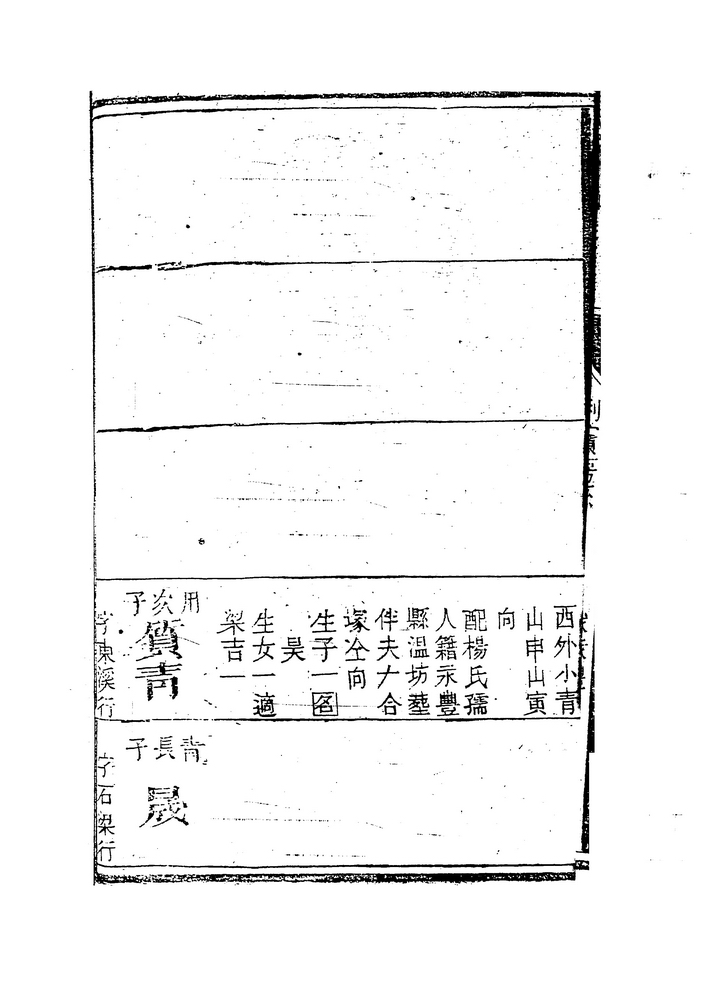 西外小青
山申山寅
向
配楊氏孺
人籍永豐
縣溫坊塟
伴夫六合
塚仝向
生子一名
昊
生女一適
梁吉一
用次子
質青
字東溪行
青長子
晟
字石梁行